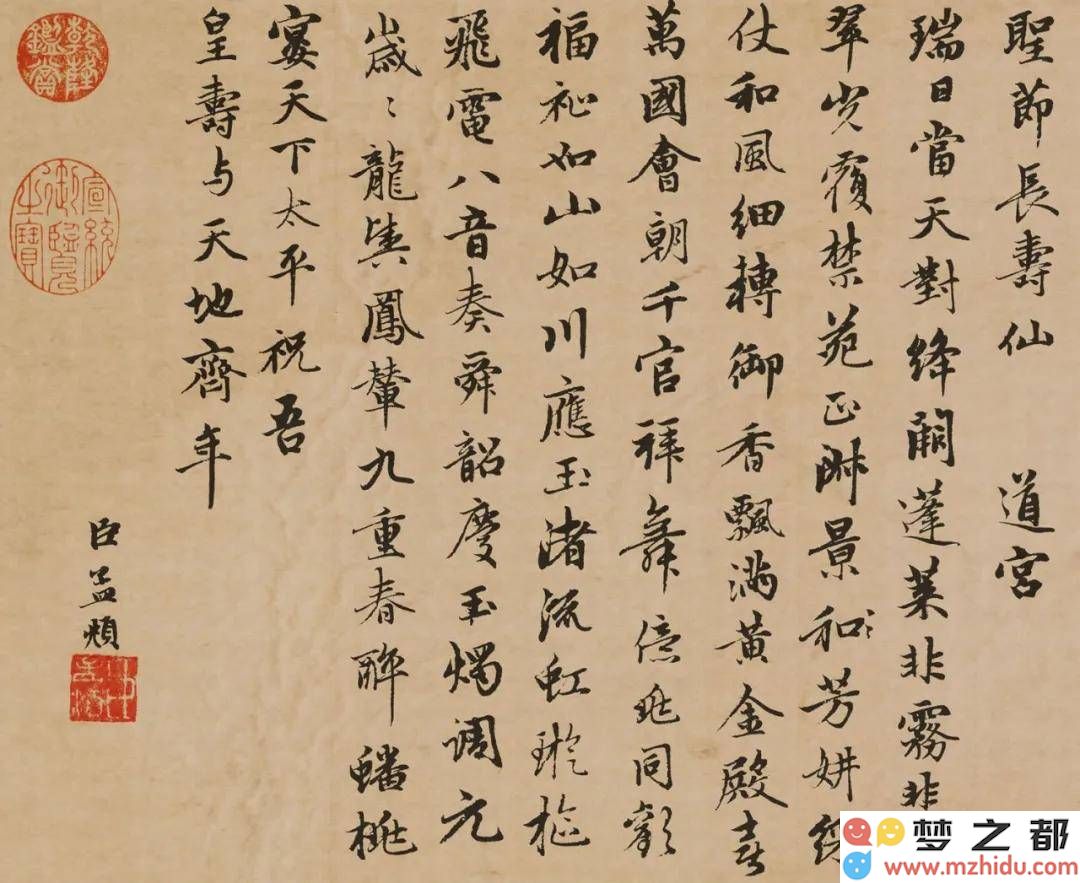 聖節長壽仙 道宮
瑞日當天對絳闕蓬萊非霧非
翠光覆禁苑正淑景和芳妍綵
仗和風細轉御香飄滿黃金殿喜
萬國會朝千官拜舞億兆同歡
福祉如山如川應玉渚流虹璇樞
飛電八音奏舜韶慶玉燭調元
歲〻龍輿鳳輦九重春醉蟠桃
宴天下太平祝吾
皇壽与天地齊年
臣孟頫
乾隆鑑賞
宣統御覽之寶
梦之都
www.mzhidu.com